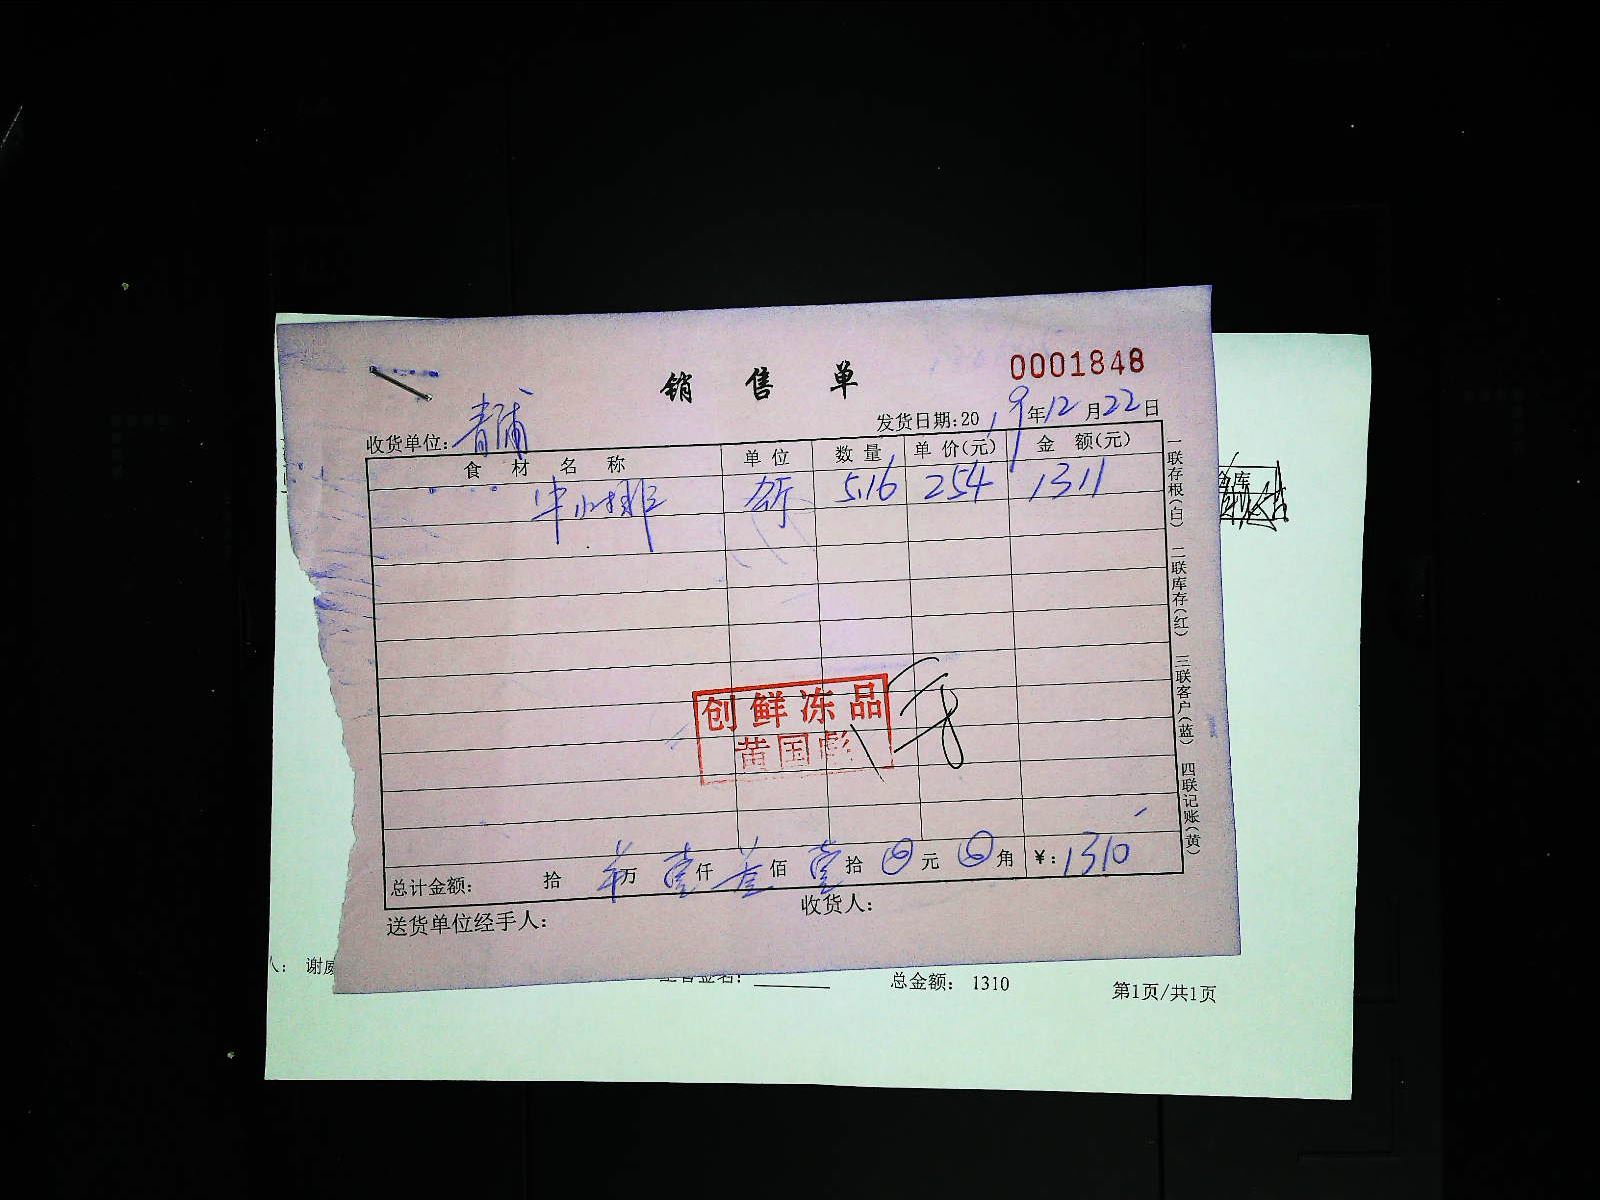 销售单
0001848
收货单位: 青浦
发货日期:2019年12月22日
食材名称 单位 数量 单价(元) 金额(元)
牛小排 公斤 5.16 254 1311
创鲜冻品
黄国彪
总计金额: 拾 万 壹仟叁佰壹拾 元 角 ¥:1310
送货单位经手人: 收货人:
一联存根(白) 二联库存(红) 三联客户(蓝) 四联记账(黄)
库
人: 谢威
总金额: 1310
第1页/共1页